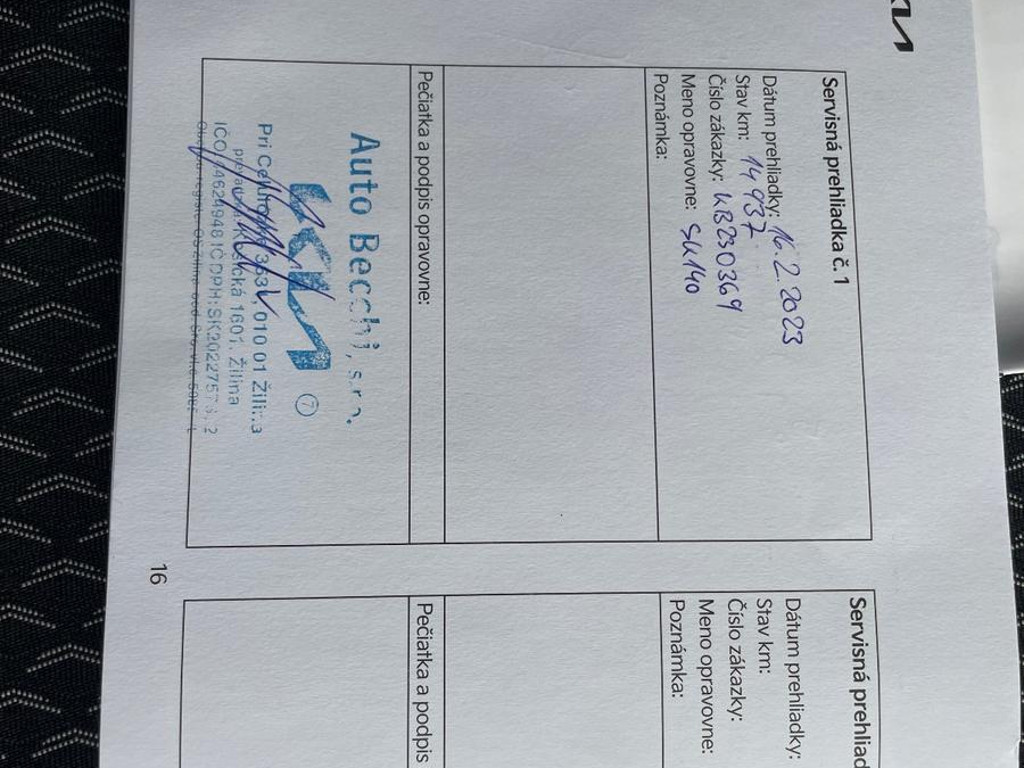 KIA
Servisná prehliadka č. 1
Dátum prehliadky: 16.2.2023
Stav km: 14 937
Číslo zákazky: KB230369
Meno opravovne: SK140
Poznámka:
Pečiatka a podpis opravovne:
Auto Becchi, s.r.o.
KIA
7
Pri Celulózke 010 01 Žilina
Košická 1601, Žilina
IČO: 46249481 IČ DPH: SK202275
16
Servisná prehliad
Dátum prehliadky:
Stav km:
Číslo zákazky:
Meno opravovne:
Poznámka:
Pečiatka a podpis